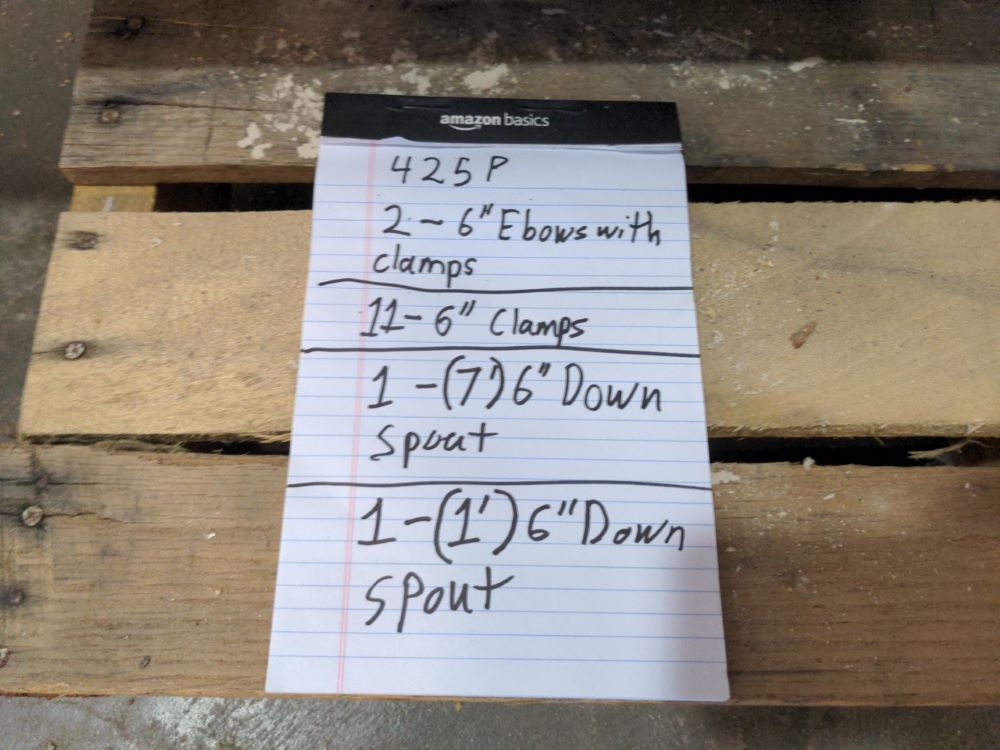 amazon basics
425P
2-6" Ebows with
clamps
11-6" Clamps
1-(7')6" Down
spout
1-(1')6" Down
spout